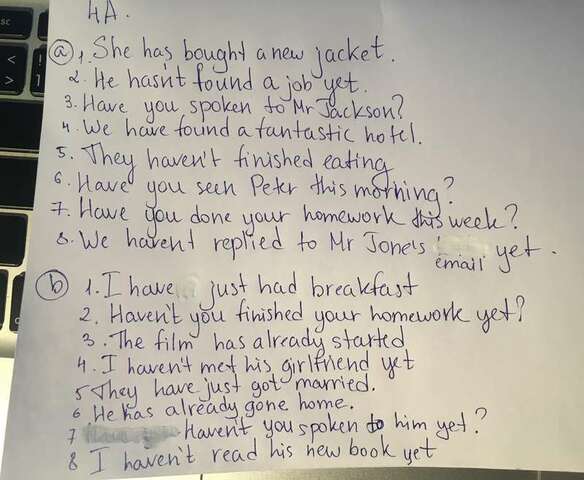 4A.
a 1, She has bought a new jacket.
2. He hasn't found a job yet.
3. Have you spoken to Mr Jackson?
4. We have found a fantastic hotel.
5. They haven't finished eating
6. Have you seen Peter this morning?
7. Have you done your homework this week?
8. We havent replied to Mr Jone's yet.
email
b 1. I have just had breakfast
2. Haven't you finished your homework yet?
3. The film has already started
4. I haven't met his girlfriend yet
5 They have just got married.
6 He has already gone home.
7 Haven't you spoken to him yet?
8 I haven't read his new book yet